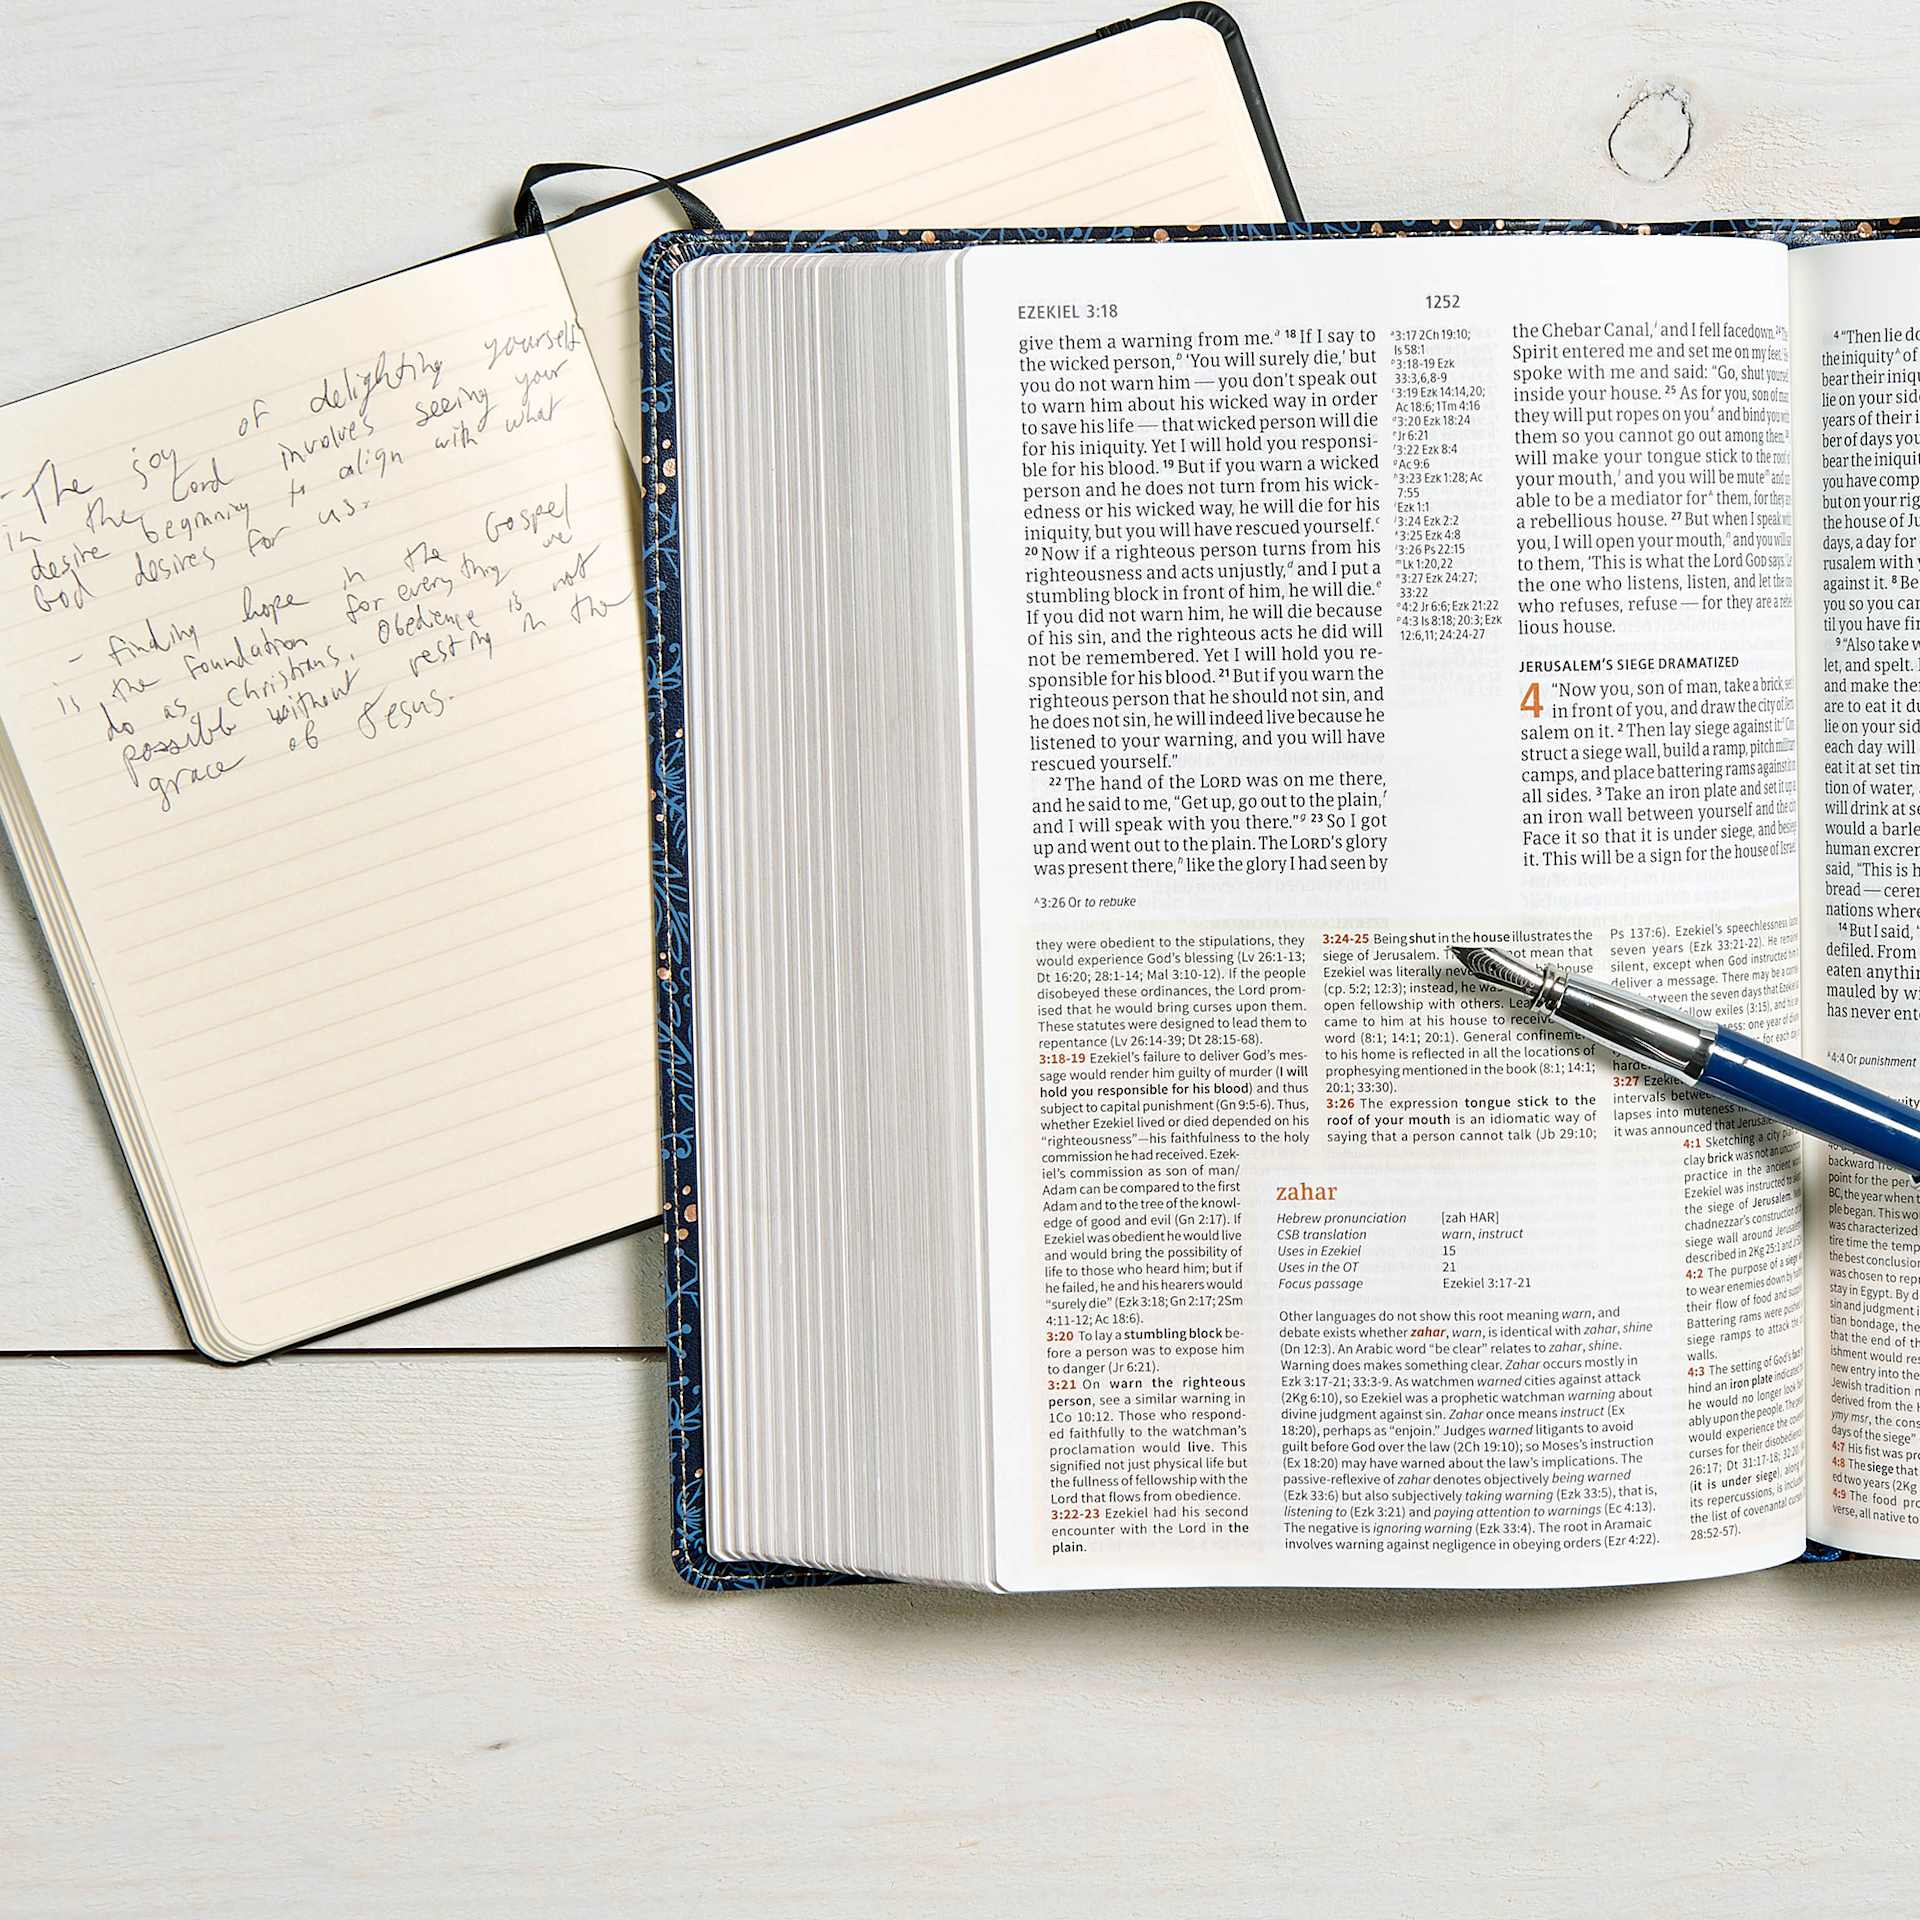 - The joy of delighting yourself
in the Lord involves seeing your
desire beginning to align with what
God desires for us.
- finding hope in the Gospel
is the foundation for everything we
do as Christians. Obedience is not
possible without resting in the
grace of Jesus.
EZEKIEL 3:18
1252
give them a warning from me. 18 If I say to
the wicked person, ‘You will surely die,’ but
you do not warn him — you don’t speak out
to warn him about his wicked way in order
to save his life — that wicked person will die
for his iniquity. Yet I will hold you responsi-
ble for his blood. 19 But if you warn a wicked
person and he does not turn from his wick-
edness or his wicked way, he will die for his
iniquity, but you will have rescued yourself.c
20 Now if a righteous person turns from his
righteousness and acts unjustly,d and I put a
stumbling block in front of him, he will die.e
If you did not warn him, he will die because
of his sin, and the righteous acts he did will
not be remembered. Yet I will hold you re-
sponsible for his blood. 21 But if you warn the
righteous person that he should not sin, and
he does not sin, he will indeed live because he
listened to your warning, and you will have
rescued yourself.”
22 The hand of the LORD was on me there,
and he said to me, “Get up, go out to the plain,f
and I will speak with you there.”g 23 So I got
up and went out to the plain. The LORD’s glory
was present there,h like the glory I had seen by
A3:26 Or to rebuke
3:17 2Ch 19:10;
Is 58:1
3:18-19 Ezk
33:3,6,8-9
3:19 Ezk 14:14,20;
Ac 18:6; 1Tm 4:16
3:20 Ezk 18:24
Jr 6:21
3:22 Ezk 8:4
Ac 9:6
3:23 Ezk 1:28; Ac
7:55
Ezk 1:1
3:24 Ezk 2:2
3:25 Ezk 4:8
3:26 Ps 22:15
Lk 1:20,22
3:27 Ezk 24:27;
33:22
4:2 Jr 6:6; Ezk 21:22
4:3 Is 8:18; 20:3; Ezk
12:6,11; 24:24-27
the Chebar Canal,i and I fell facedown. 24 The
Spirit entered me and set me on my feet. He
spoke with me and said: “Go, shut yourself
inside your house. 25 As for you, son of man,
they will put ropes on you and bind you with
them so you cannot go out among them. 26 I
will make your tongue stick to the roof of
your mouth, and you will be mute and un
able to be a mediator for them, for they are
a rebellious house. 27 But when I speak with
you, I will open your mouth, and you will say
to them, ‘This is what the Lord GOD says.’ Let
the one who listens, listen, and let the one
who refuses, refuse — for they are a rebel
lious house.
JERUSALEM’S SIEGE DRAMATIZED
4 “Now you, son of man, take a brick, set it
in front of you, and draw the city of Jeru
salem on it. 2 Then lay siege against it: Con
struct a siege wall, build a ramp, pitch military
camps, and place battering rams against it on
all sides. 3 Take an iron plate and set it up as
an iron wall between yourself and the city.
Face it so that it is under siege, and besiege
it. This will be a sign for the house of Israel.
they were obedient to the stipulations, they
would experience God’s blessing (Lv 26:1-13;
Dt 16:20; 28:1-14; Mal 3:10-12). If the people
disobeyed these ordinances, the Lord prom-
ised that he would bring curses upon them.
These statutes were designed to lead them to
repentance (Lv 26:14-39; Dt 28:15-68).
3:18-19 Ezekiel’s failure to deliver God’s mes-
sage would render him guilty of murder (I will
hold you responsible for his blood) and thus
subject to capital punishment (Gn 9:5-6). Thus,
whether Ezekiel lived or died depended on his
“righteousness”—his faithfulness to the holy
commission he had received. Ezek-
iel’s commission as son of man/
Adam can be compared to the first
Adam and to the tree of the knowl-
edge of good and evil (Gn 2:17). If
Ezekiel was obedient he would live
and would bring the possibility of
life to those who heard him; but if
he failed, he and his hearers would
“surely die” (Ezk 3:18; Gn 2:17; 2Sm
4:11-12; Ac 18:6).
3:20 To lay a stumbling block be-
fore a person was to expose him
to danger (Jr 6:21).
3:21 On warn the righteous
person, see a similar warning in
1Co 10:12. Those who respond-
ed faithfully to the watchman’s
proclamation would live. This
signified not just physical life but
the fullness of fellowship with the
Lord that flows from obedience.
3:22-23 Ezekiel had his second
encounter with the Lord in the
plain.
3:24-25 Being shut in the house illustrates the
siege of Jerusalem. not mean that
Ezekiel was literally house
(cp. 5:2; 12:3); instead, he was
open fellowship with others.
came to him at his house to receive
word (8:1; 14:1; 20:1). General confinement
to his home is reflected in all the locations of
prophesying mentioned in the book (8:1; 14:1;
20:1; 33:30).
3:26 The expression tongue stick to the
roof of your mouth is an idiomatic way of
saying that a person cannot talk (Jb 29:10;
Ps 137:6). Ezekiel’s speechlessness
seven years (Ezk 33:21-22). He
silent, except when God instructed
deliver a message. There may be a
between the seven days that Ezekiel
fellow exiles (3:15), and his
one year of
for each day
3:27
intervals
lapses into muteness
it was announced that
zahar
Hebrew pronunciation [zah HAR]
CSB translation warn, instruct
Uses in Ezekiel 15
Uses in the OT 21
Focus passage Ezekiel 3:17-21
Other languages do not show this root meaning warn, and
debate exists whether zahar, warn, is identical with zahar, shine
(Dn 12:3). An Arabic word “be clear” relates to zahar, shine.
Warning does makes something clear. Zahar occurs mostly in
Ezk 3:17-21; 33:3-9. As watchmen warned cities against attack
(2Kg 6:10), so Ezekiel was a prophetic watchman warning about
divine judgment against sin. Zahar once means instruct (Ex
18:20), perhaps as “enjoin.” Judges warned litigants to avoid
guilt before God over the law (2Ch 19:10); so Moses’s instruction
(Ex 18:20) may have warned about the law’s implications. The
passive-reflexive of zahar denotes objectively being warned
(Ezk 33:6) but also subjectively taking warning (Ezk 33:5), that is,
listening to (Ezk 3:21) and paying attention to warnings (Ec 4:13).
The negative is ignoring warning (Ezk 33:4). The root in Aramaic
involves warning against negligence in obeying orders (Ezr 4:22).
4:1 Sketching a city
clay brick was not an
practice in the ancient
Ezekiel was instructed to
the siege of Jerusalem.
chadnezzar’s construction
siege wall around Jerusalem
described in 2Kg 25:1 and
4:2 The purpose of a siege
to wear enemies down by
their flow of food and
Battering rams were pushed
siege ramps to attack the
walls.
4:3 The setting of God’s face
hind an iron plate indicated
he would no longer look
ably upon the people. The
would experience the
curses for their disobedience
26:17; Dt 31:17-18; 32:20
(it is under siege), along
its repercussions, is
the list of covenantal curses
28:52-57).
4 “Then lie
the iniquity of
bear their
lie on your
years of their
ber of days you
bear the
you have
but on your
the house of
days, a day for
rusalem with
against it. 8
you so you
til you have
9 “Also take
let, and spelt.
and make
are to eat it
lie on your
each day will
eat it at set
tion of water,
will drink at
would a
human
said, “This is
bread —
nations where
14 But I said,
defiled. From
eaten
mauled by
has never
4:4 Or punishment
backward
point for the
BC, the year when
ple began. This
was characterized
tire time the
the best
was chosen to
stay in Egypt. By
sin and judgment
tian bondage, the
that the end of
ishment would
new entry into the
Jewish tradition
derived from the
ymy msr, the
days of the siege”
4:7 His fist was
4:8 The siege that
ed two years (2Kg
4:9 The food
verse, all native to